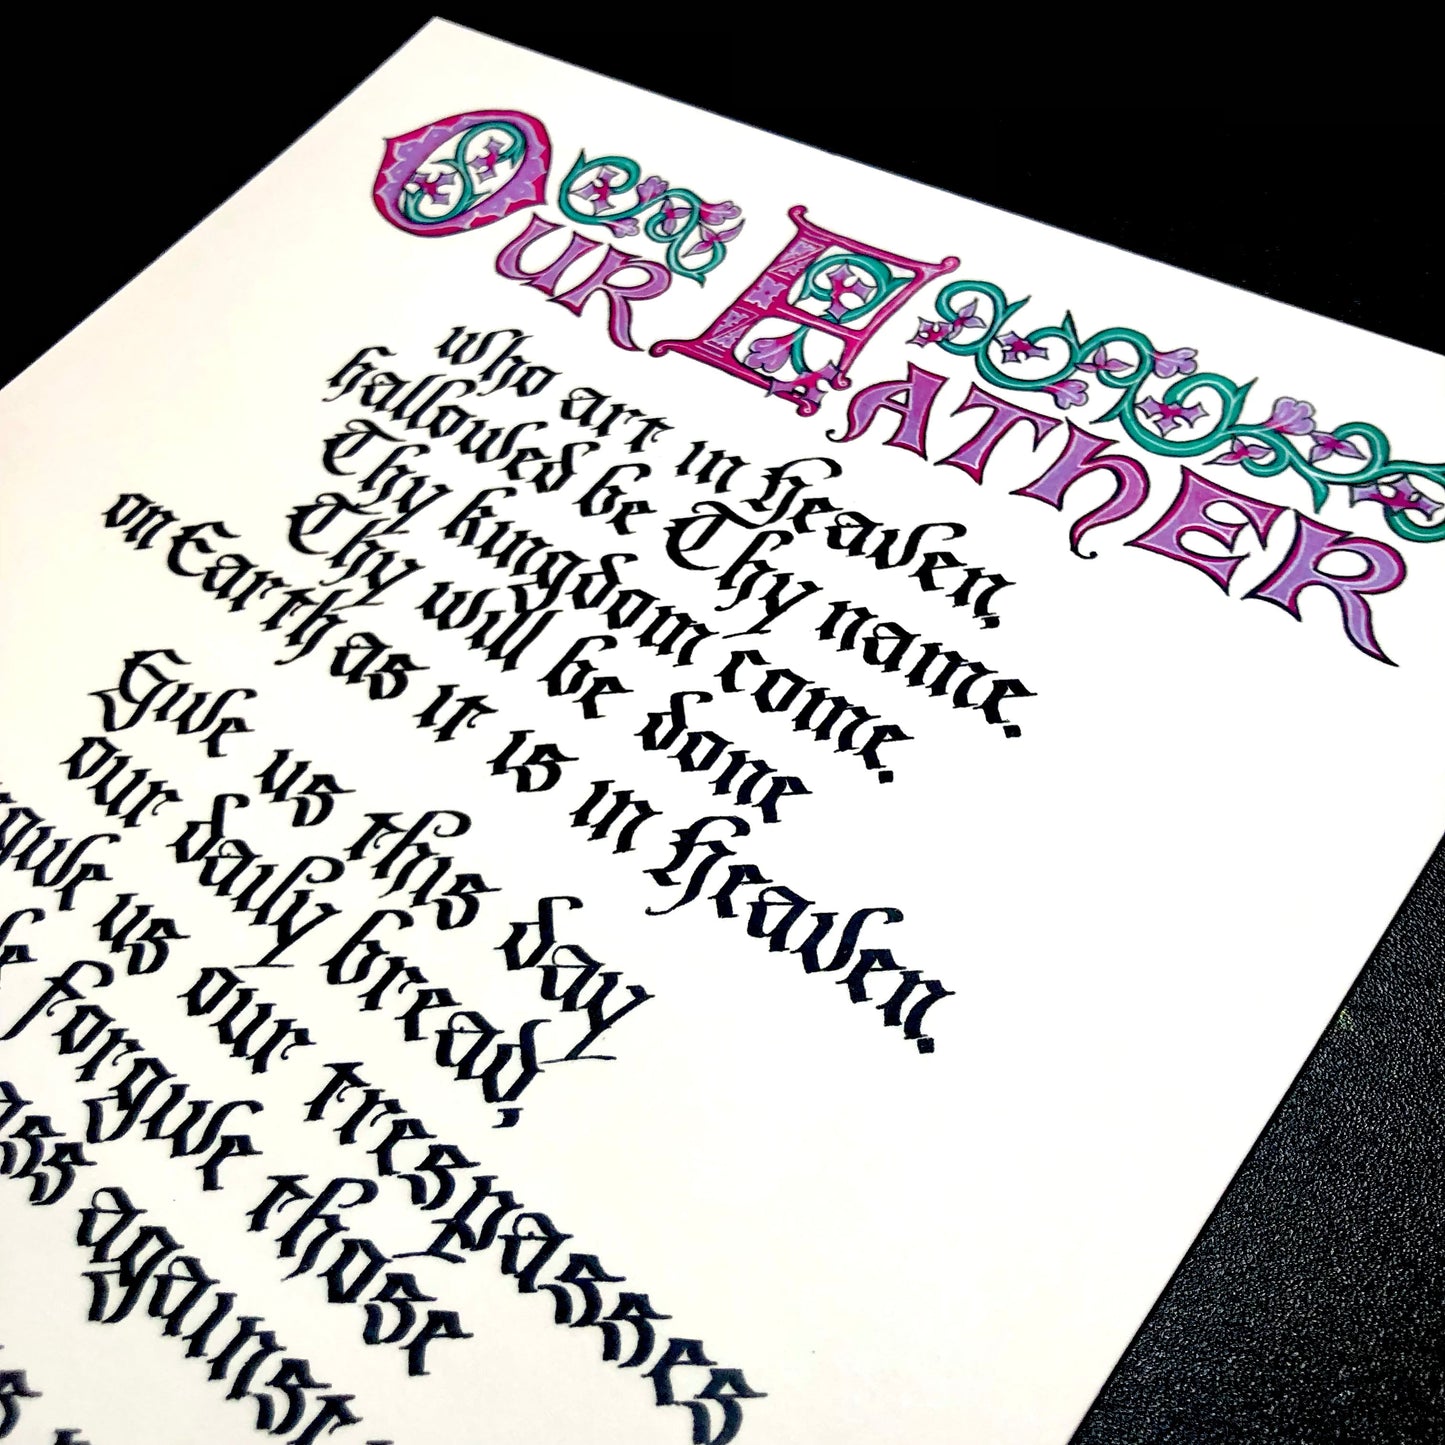 Our Father
who art in Heaven,
hallowed be Thy name.
Thy kingdom come.
Thy will be done
on Earth as it is in Heaven.
Give us this day
our daily bread,
us our trespasses
forgive those
against